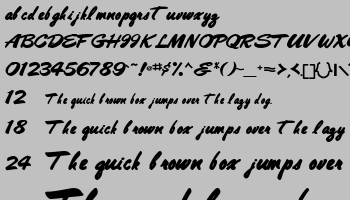 al cd eb ghijklmnopqrsT uvwxyz
ABCDEFGH99KLMNOPQRSTUVWX
0123456789
12 The quick brown box jumps over The lazy dog.
18 The quick brown box jumps over The lazy
24 The quick brown box jumps over